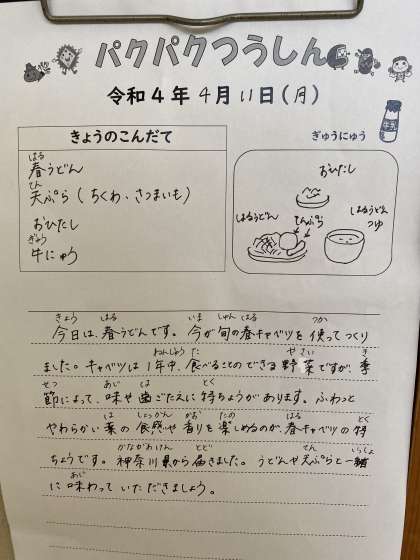 パクパクつうしん
令和4年4月11日(月)
きょうのこんだて
はる
春うどん
てん
天ぷら(ちくわ、さつまいも)
おひたし
ぎゅう
牛にゅう
ぎゅうにゅう
牛乳
おひたし
はるうどん
てんぷら
はるうどん
つゆ
きょう はる いま しゅん はる つか
今日は、春うどんです。今が旬の春キャベツを使ってつくり
ねんじゅう た や さい き
ました。キャベツは1年中、食べることのできる野菜ですが、季
せつ あじ は とく
節によって、味や歯ごたえに特ちょうがあります。ふわっと
は しょっかん かお たの はる とく
やわらかい葉の食感や香りを楽しめるのが、春キャベツの特
かながわけん とど てん いっしょ
ちょうです。神奈川県から届きました。うどんや天ぷらと一緒
あじ
に味わっていただきましょう。